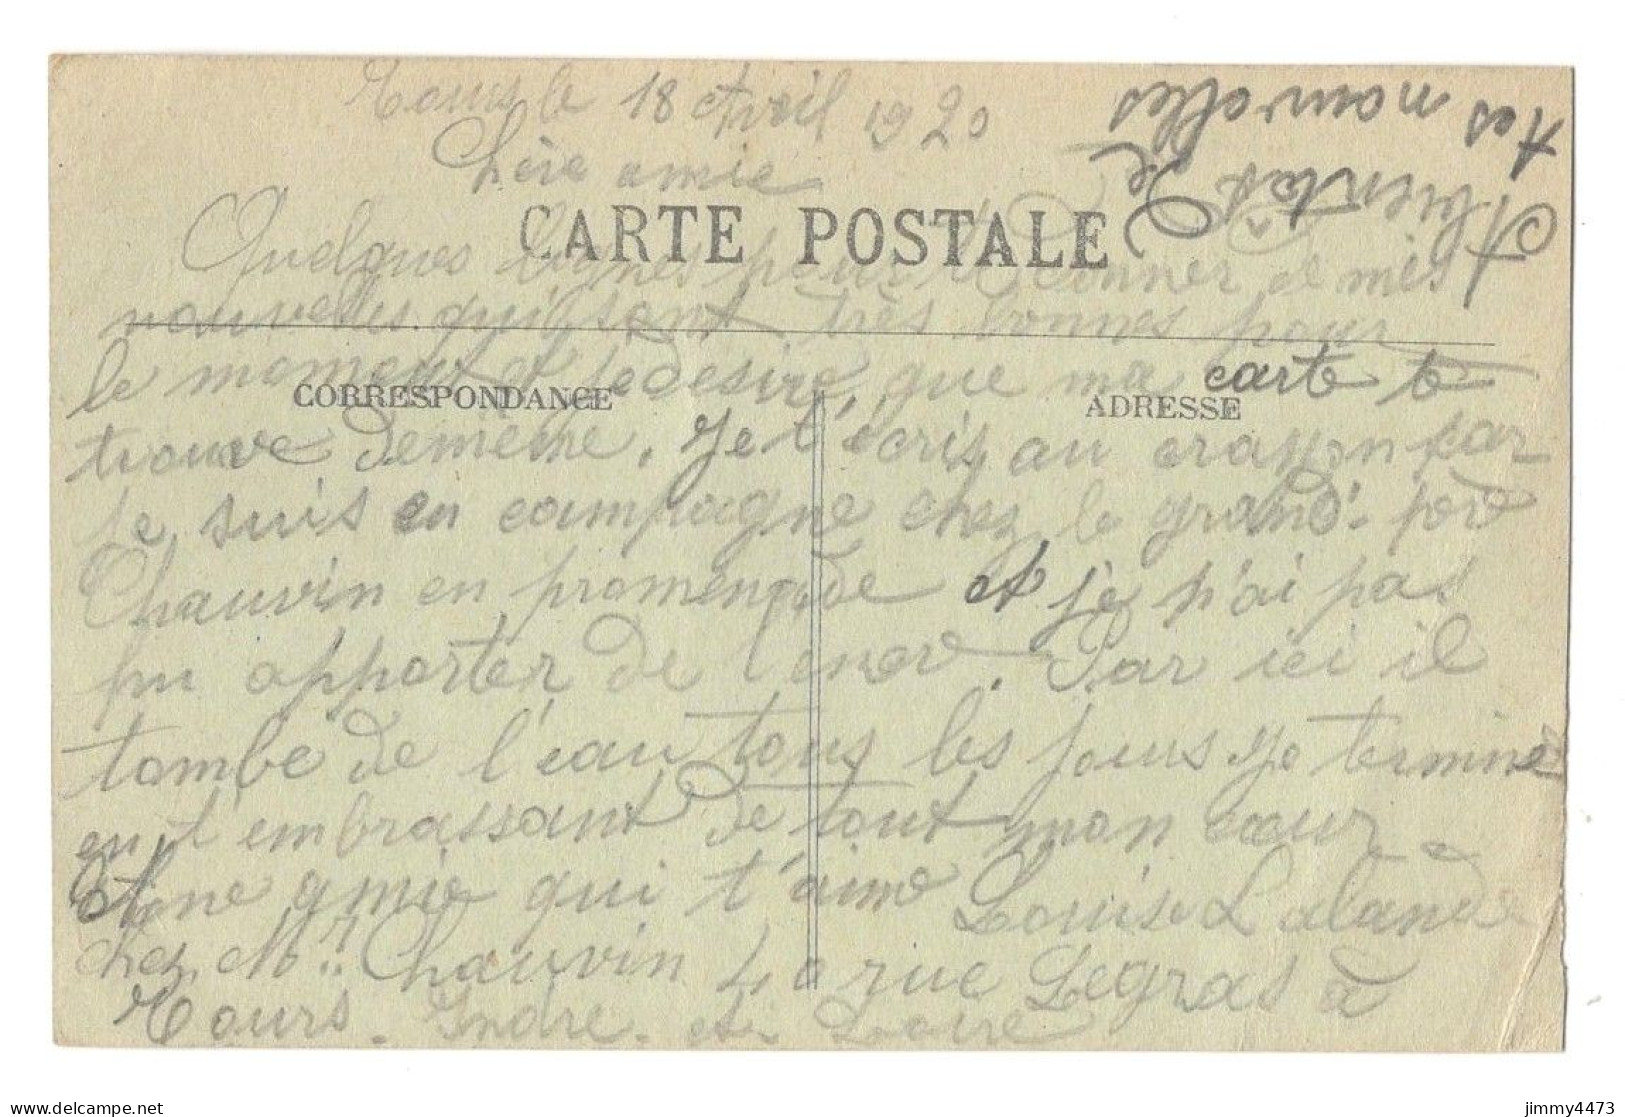 Tours le 18 Avril 1920
Chère amie
CARTE POSTALE
Quelques lignes pour te donner de mes
nouvelles qui sont très bonnes pour
le moment et je désire, que ma carte te
CORRESPONDANCE
ADRESSE
trouve de meme. Je t'écris au crayon car
je suis en campagne chez le grand-père
Chauvin en promenade et je n'ai pas
pu apporter de l'encre. Par ici il
tombe de l'eau tous les jours je termine
en t'embrassant de tout mon cœur
Une amie qui t'aime Louise Lalande
chez Mr. Chauvin 40 rue Legras à
Tours. Indre-et-Loire
A bientôt de
tes nouvelles
jimmy4473
delcampe.net